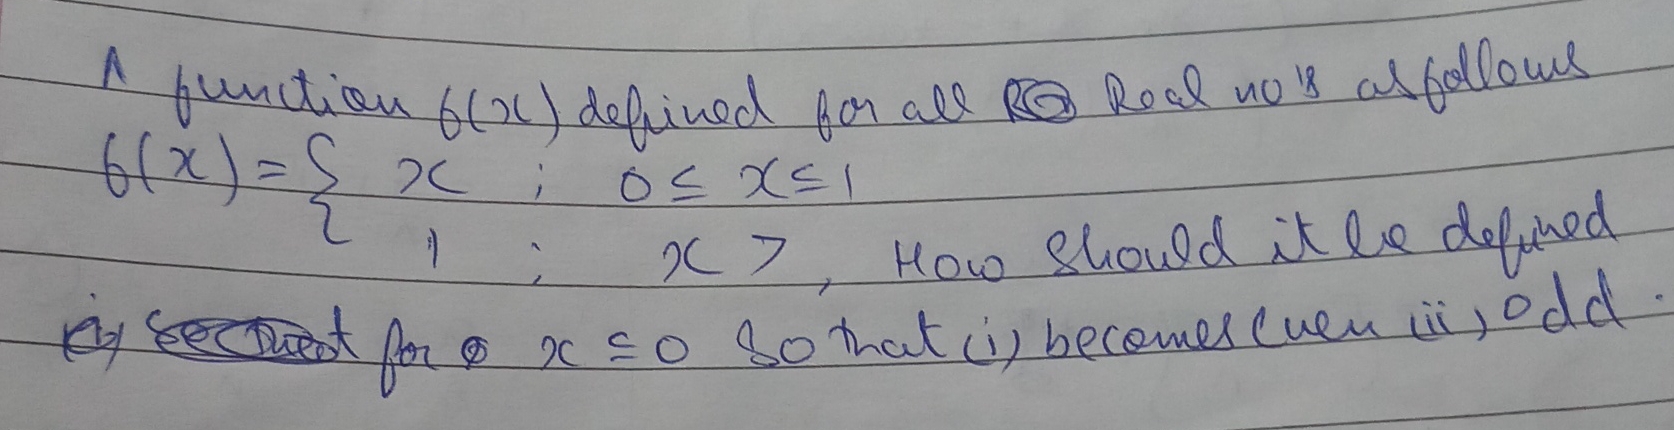 A function f(x) defined for all Real no's as follows
f(x) = { x ; 0 ≤ x ≤ 1
1 ; x > , How should it be defined
for x ≤ 0 so that (i) becomes even (ii) odd.